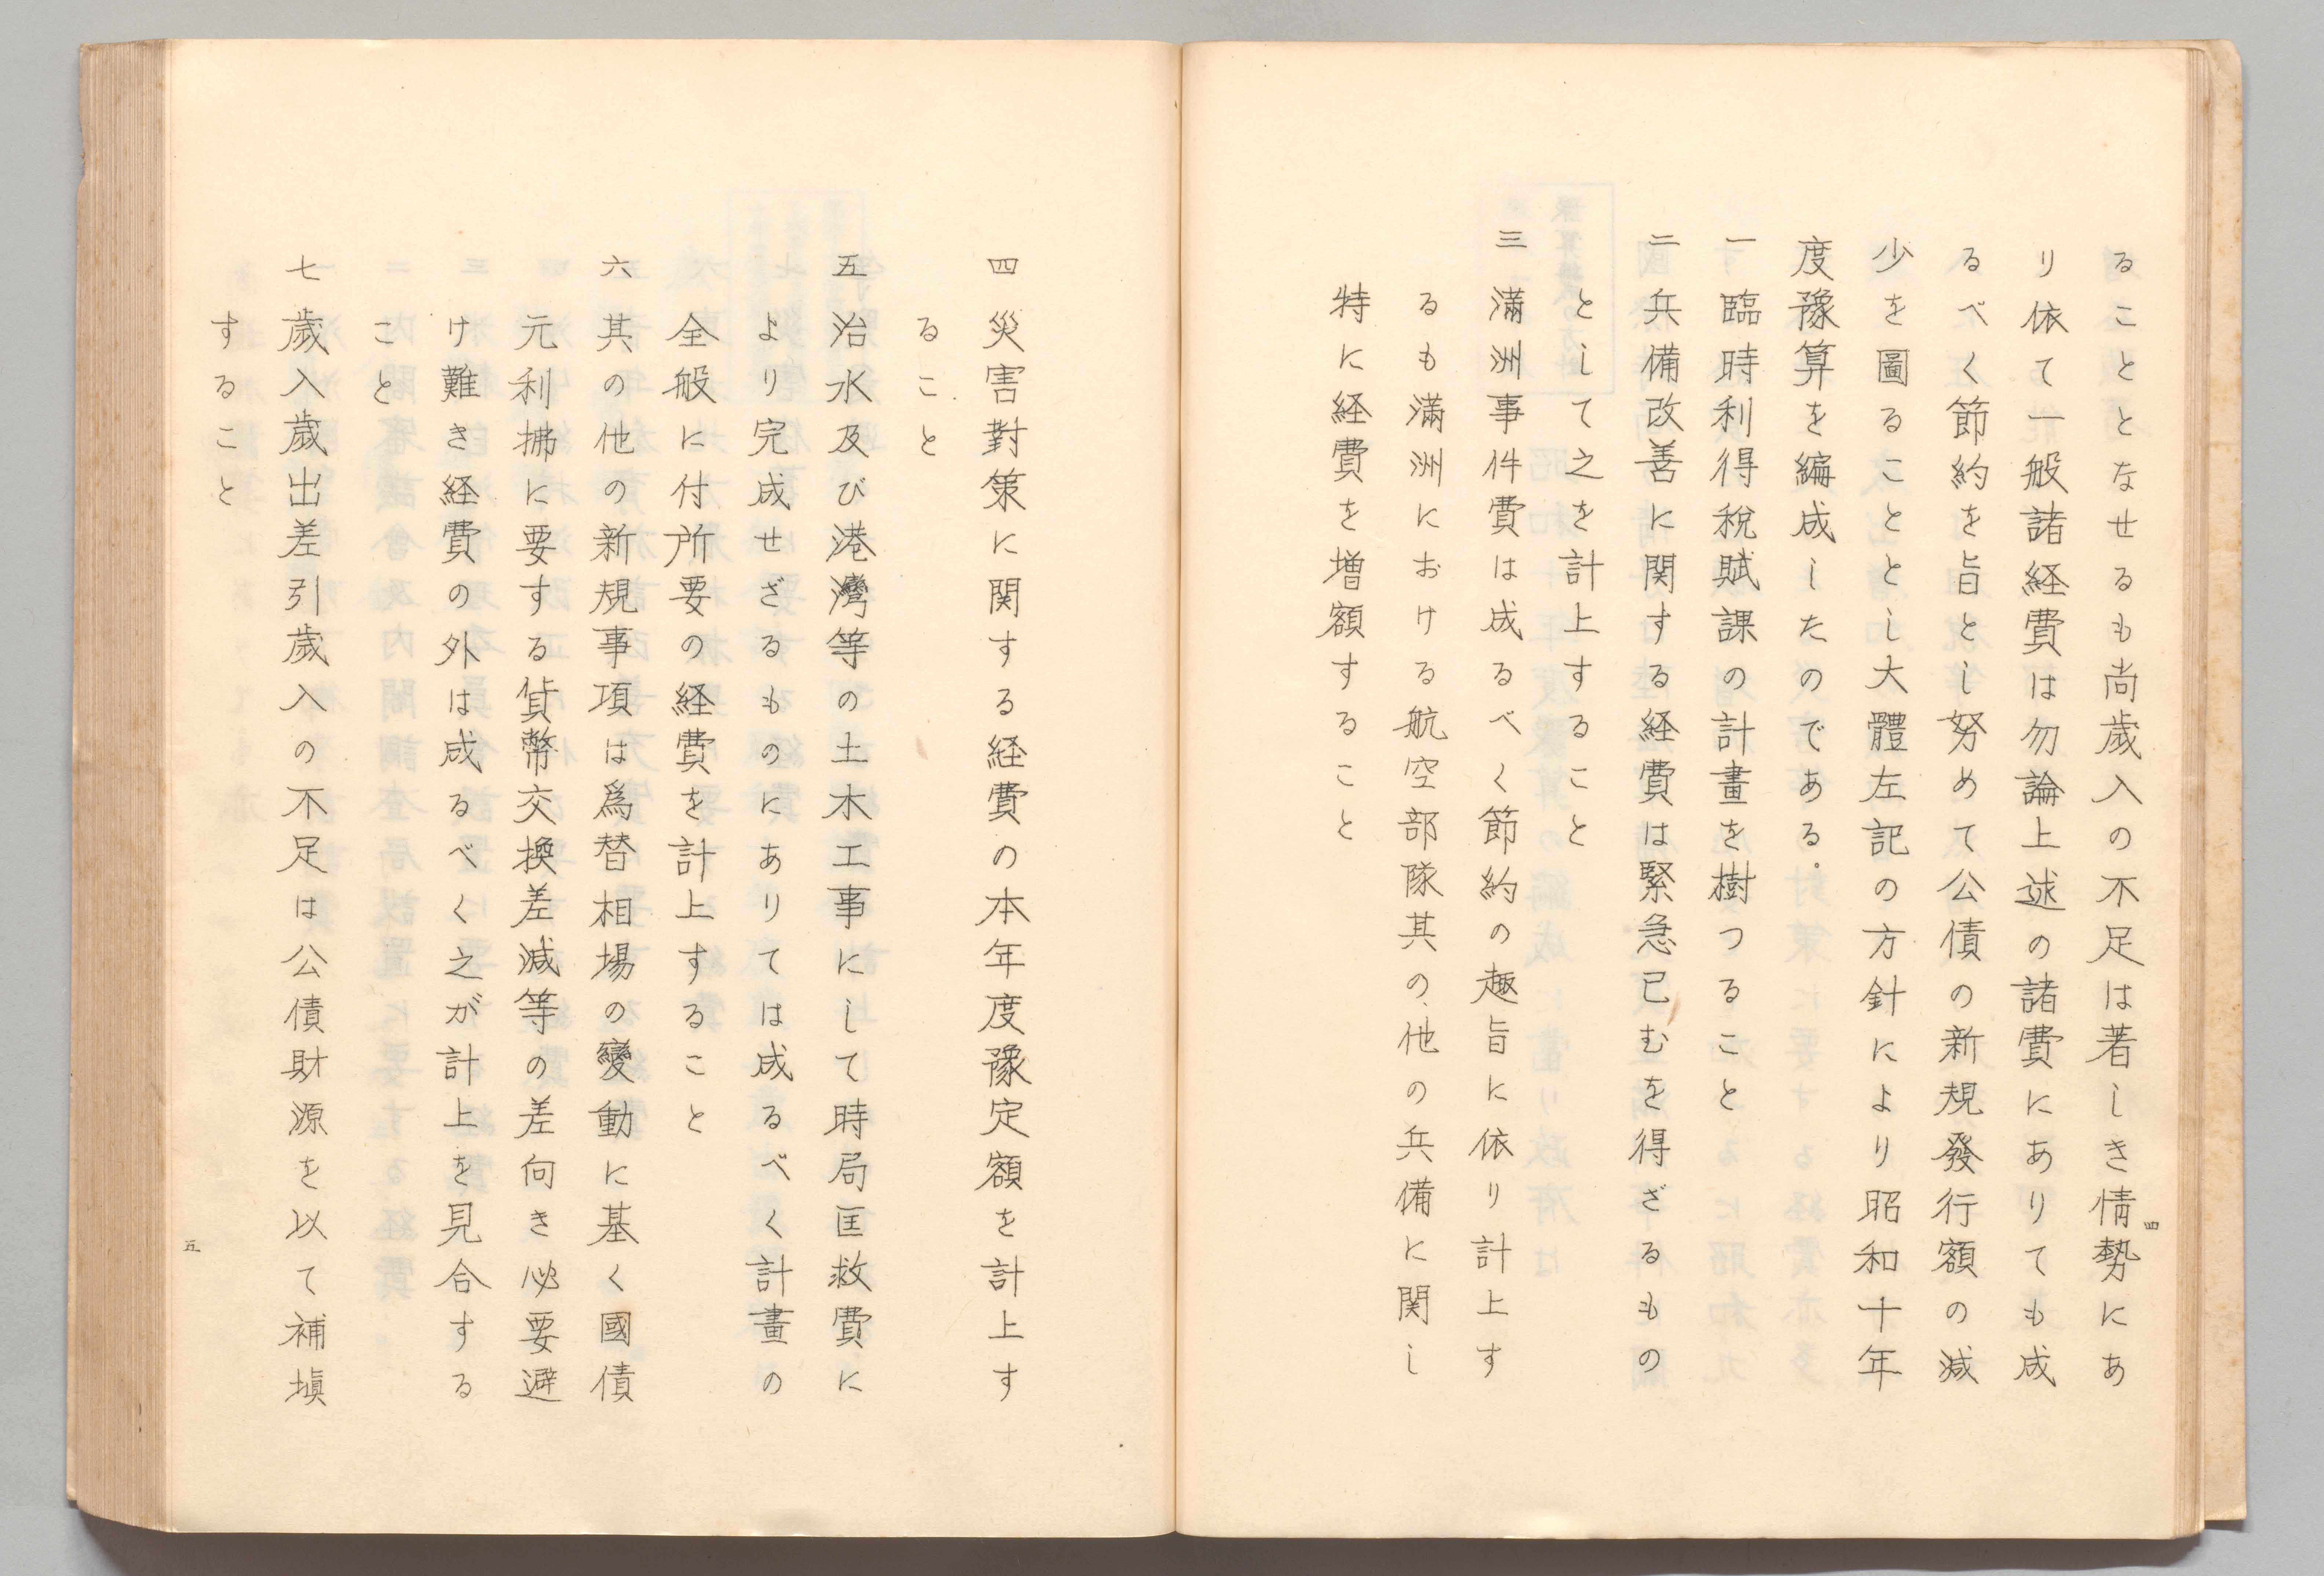 ることとなせるも尚歳入の不足は著しき情勢にあ
り依て一般諸経費は勿論上述の諸費にありても成
るべく節約を旨とし努めて公債の新規發行額の減
少を圖ることとし大體左記の方針により昭和十年
度豫算を編成したのである。
一 臨時利得税賦課の計畫を樹つること
二 兵備改善に関する経費は緊急已むを得ざるもの
として之を計上すること
三 滿洲事件費は成るべく節約の趣旨に依り計上す
るも滿洲における航空部隊其の他の兵備に関し
特に経費を増額すること
四
四 災害對策に関する経費の本年度豫定額を計上す
ること
五 治水及び港灣等の土木工事にして時局匡救費に
より完成せざるものにありては成るべく計畫の
全般に付所要の経費を計上すること
六 其の他の新規事項は爲替相場の變動に基く國債
元利拂に要する貨幣交換差減等の差向き必要避
け難き経費の外は成るべく之が計上を見合する
こと
七 歳入歳出差引歳入の不足は公債財源を以て補塡
すること
五